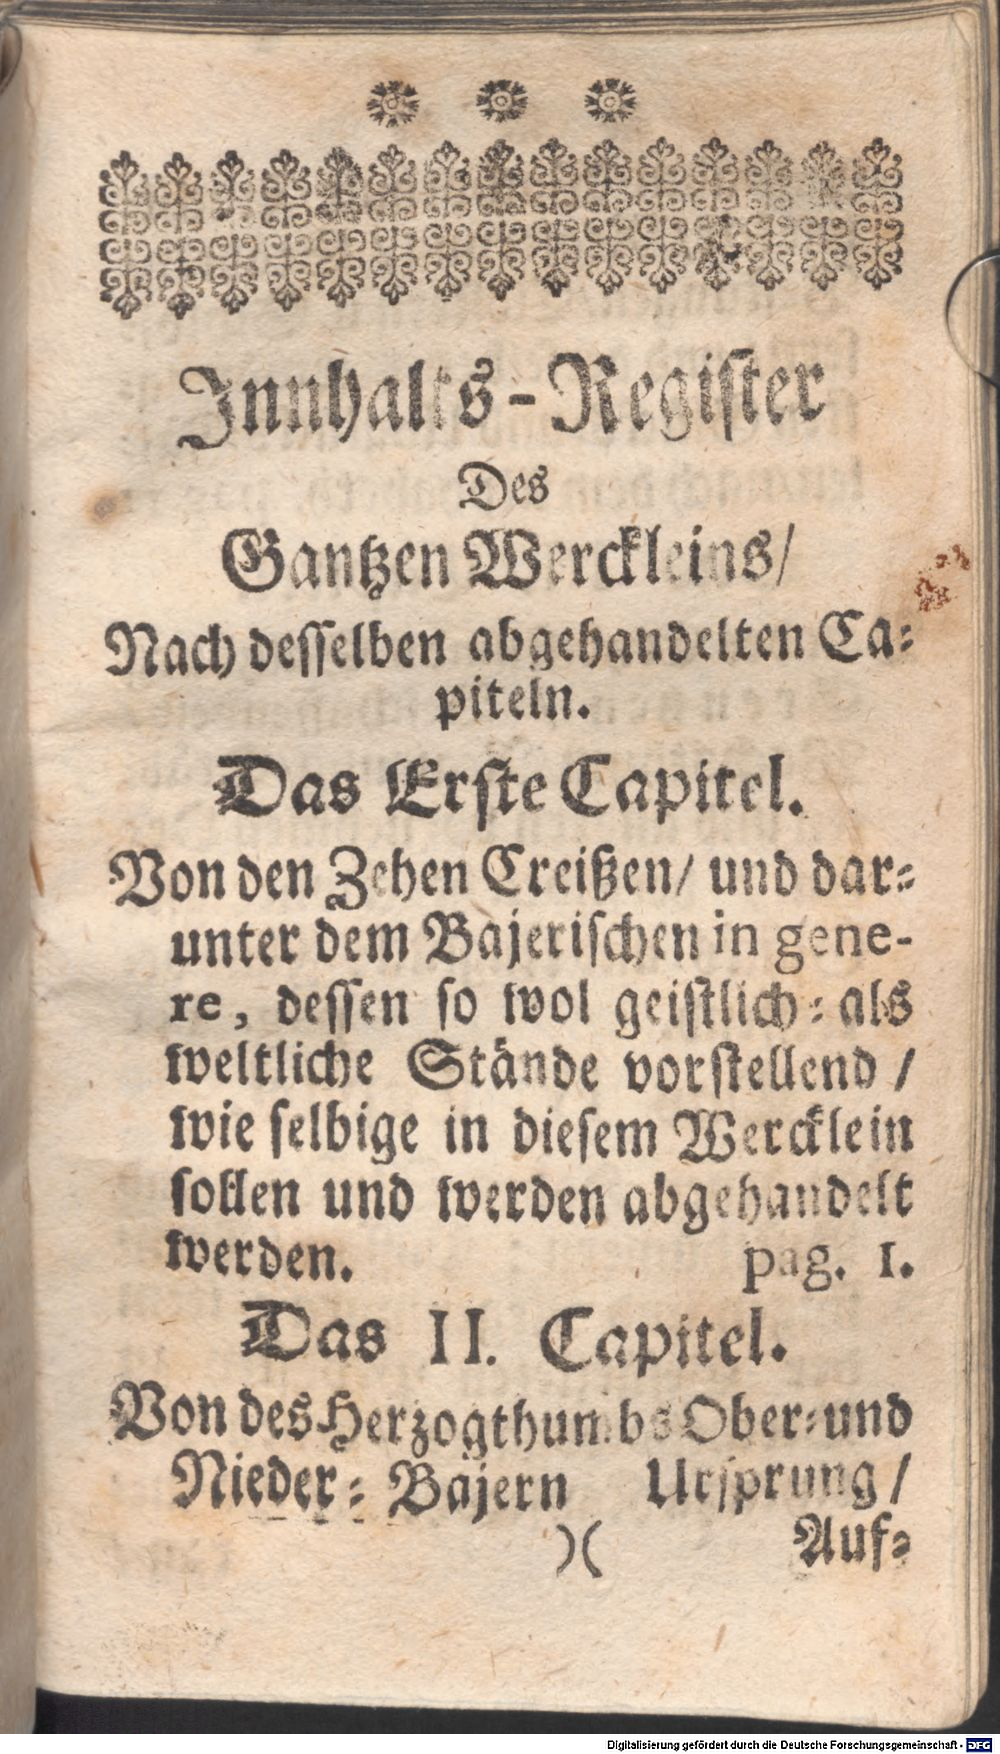 Innhalts-Register
Des
Gantzen Werckleins/
Nach desselben abgehandelten Ca-
piteln.
Das Erste Capitel.
Von den Zehen Creißen/ und dar-
unter dem Bajerischen in gene-
re, dessen so wol geistlich- als
weltliche Stände vorstellend /
wie selbige in diesem Wercklein
sollen und werden abgehandelt
werden. pag. 1.
Das II. Capitel.
Von des Herzogthumbs Ober- und
Nieder- Bajern Ursprung /
)( Auf-
Digitalisierung gefördert durch die Deutsche Forschungsgemeinschaft - DFG